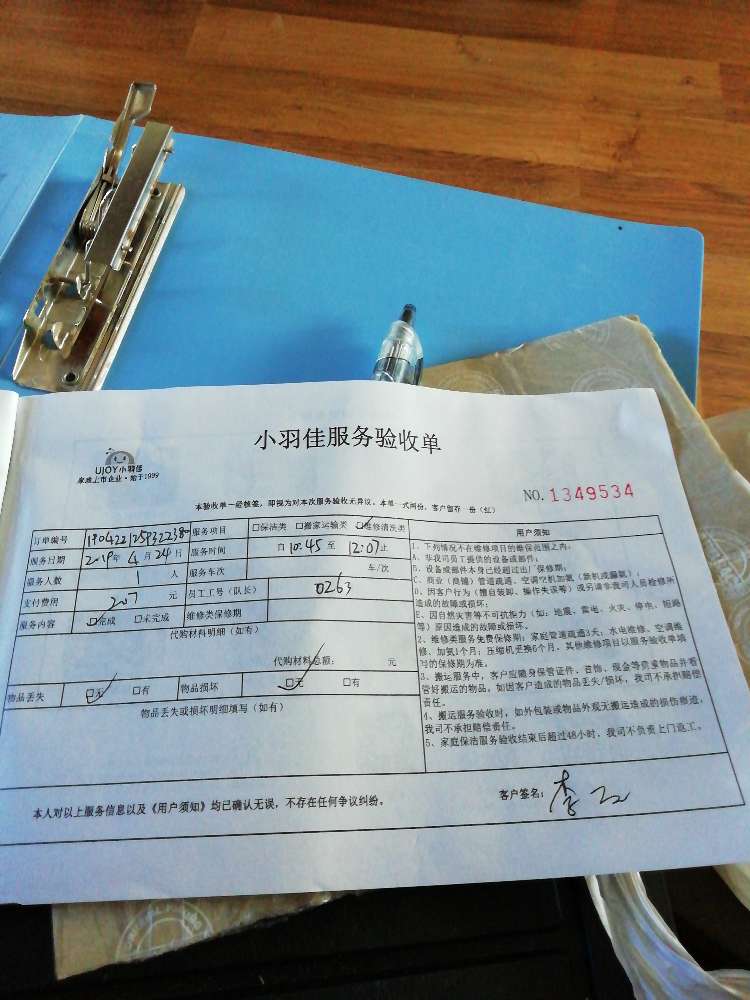 小羽佳服务验收单
UJOY小羽佳
家政上市企业·始于1999
NO. 1349534
本验收单一经核签，即视为对本次服务验收无异议。本单一式两份，客户留存 份（红）
订单编号 服务项目 □保洁类 □搬家运输类 ☑维修清洗类
服务日期 2019年 4 月 24 日 服务时间 自 10:45 至 12:07止
服务人数 1 人 服务车次 车/次
支付费用 207 元 员工工号（队长） 0263
服务内容 ☑完成 □未完成 维修类保修期
代购材料明细（如有）
代购材料总额： 元
物品丢失 ☑无 □有 物品损坏 ☑无 □有
物品丢失或损坏明细填写（如有）
用户须知
1、下列情况不在维修项目的维保范围之内：
A、非我司员工提供的设备或部件；
B、设备或部件本身已经超过出厂保修期；
C、商业（商铺）管道疏通、空调空机加氟（新机或漏氟）；
D、因客户行为（擅自装卸、操作失误等）或另请非我司人员检修所
造成的故障或损坏；
E、因自然灾害等不可抗拒力（如：地震、雷电、火灾、停电、短路
等）原因造成的故障或损坏。
2、维修类服务免费保修期：家庭管道疏通3天，水电维修、空调维
修、加氟1个月，压缩机更换6个月，其他维修项目以服务验收单填
写的保修期为准。
3、搬运服务中，客户应随身保管证件、首饰、现金等贵重物品并看
管好搬运的物品，如因客户造成的物品丢失/损坏，我司不承担赔偿
责任。
4、搬运服务验收时，如外包装或物品外观无搬运造成的损伤痕迹，
我司不承担赔偿责任。
5、家庭保洁服务验收结束后超过48小时，我司不负责上门返工。
本人对以上服务信息以及《用户须知》均已确认无误，不存在任何争议纠纷。
客户签名：李